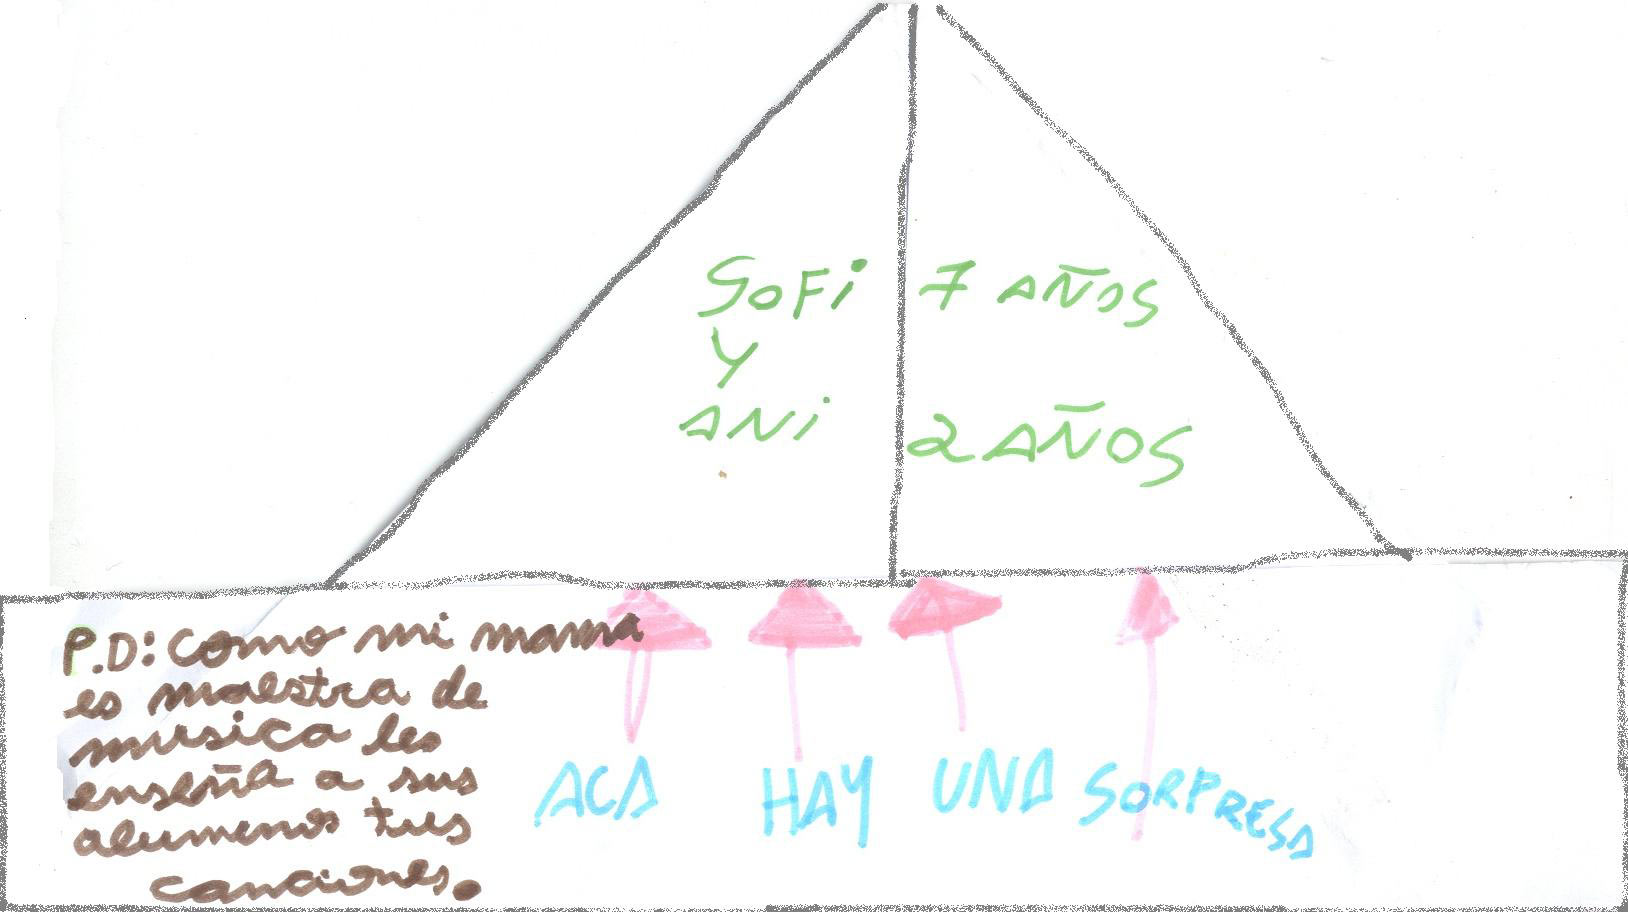 SOFi 7 AÑOS
Y
ANi 2 AÑOS
P.D: como mi mama
es maestra de
musica les
enseña a sus
alumenos tus
canciones.
ACA HAY UNA SORPRESA